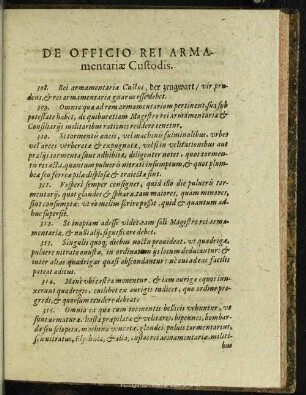 DE OFFICIO REI ARMA-
mentariæ Custodis.
308. Rei armamentariæ Custos, der zeugwart, vir pru-
dens, & rei armamentariæ gnarus esse debet.
309. Omnia quæ ad rem armamentariam pertinent, sua sub
potestate habet, de quibus etiam Magistro rei armamentariæ &
Consiliarijs militaribus rationes reddere tenetur.
310. Si tormentis æneis, vel machinis fulminalibus, urbes
vel arces verberatæ & expugnatæ, vel si in velitationibus aut
prælijs tormenta sint adhibita, diligenter notet: quot tormen-
tis icta, quantum pulveris nitrati insumptum, & quot plum-
bea seu ferrea pila displosæ & traiectæ sint.
311. Vesperi semper consignet, quid illo die pulveris tormen-
tarij, quot glandes & sphæræ, tam maiores, quam minores,
sint consumptæ: ut rò melius scire possit, quid & quantum ad-
huc supersit.
312. Si inopiam adesse videt, eam soli Magistro rei arma-
mentariæ, & nulli alij, significare debet.
313. Singulis quoq; diebus noctu provideat, ut quadrigæ,
pulvere nitrato onustæ, in ordinatum locum deducantur: &
inter alias quadrigas quasi abscondantur: ne cuivis eas facilis
pateat aditus.
314. Mane ubi castra moventur, & iam aurigæ equos iun-
xerunt quadrigis, cuilibet ex aurigis indicet, quo ordine pro-
gredi, & quorsum tendere debeat.
315. Omnia ea quæ cum tormentis bellicis vehuntur, ve
sunt armaturæ, hastæ præpilatæ & velitares, bipennes, bombar-
dæ seu sclopeta, machinæ venecæ, glandes, pulvis tormentarius,
seu nitratus, & alia, custos rei armamentariæ, militi-
bus